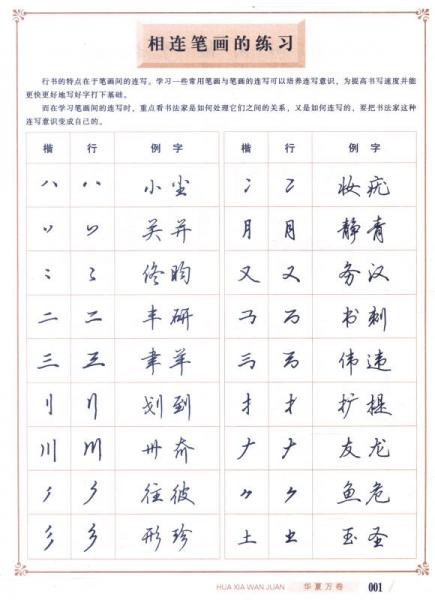 相连笔画的练习
行书的特点在于笔画间的连写。学习一些常用笔画与笔画的连写可以培养连写意识，为提高书写速度并能
更快更好地写好字打下基础。
而在学习笔画间的连写时，重点看书法家是如何处理它们之间的关系，又是如何连写的，要把书法家这种
连写意识变成自己的。
楷 行 例字 楷 行 例字
小尘 妆疣
关并 月 月 静青
佟昀 又 又 务汉
二 二 丰研 书刺
三 三 聿羊 伟违
刂 刂 划到 扩提
川 川 卌奔 友龙
往彼 鱼危
彡 彡 形珍 土 土 玉圣
HUA XIA WAN JUAN 华夏万卷 001